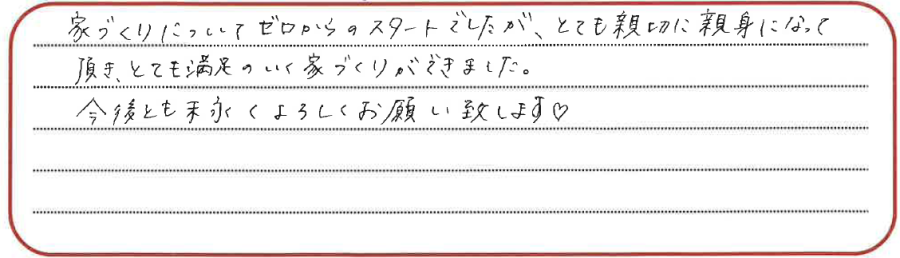 家づくりについてゼロからのスタートでしたが、とても親切に親身になって
頂き、とても満足のいく家づくりができました。
今後とも末永くよろしくお願い致します♡